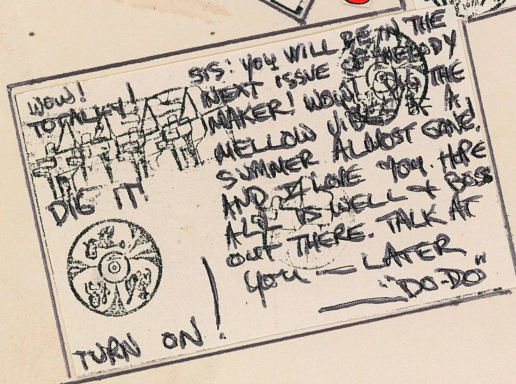 WOW!
TOTALLY!
DIG IT!
TURN ON!
SIS: YOU WILL BE IN THE
NEXT ISSUE OF THE BODY
MAKER! WOW! THE
MELLOW A
SUMMER ALMOST GONE!
AND I LOVE YOU. HOPE
ALL IS WELL + BOSS
OUT THERE. TALK AT
YOU — LATER
"DO-DO"